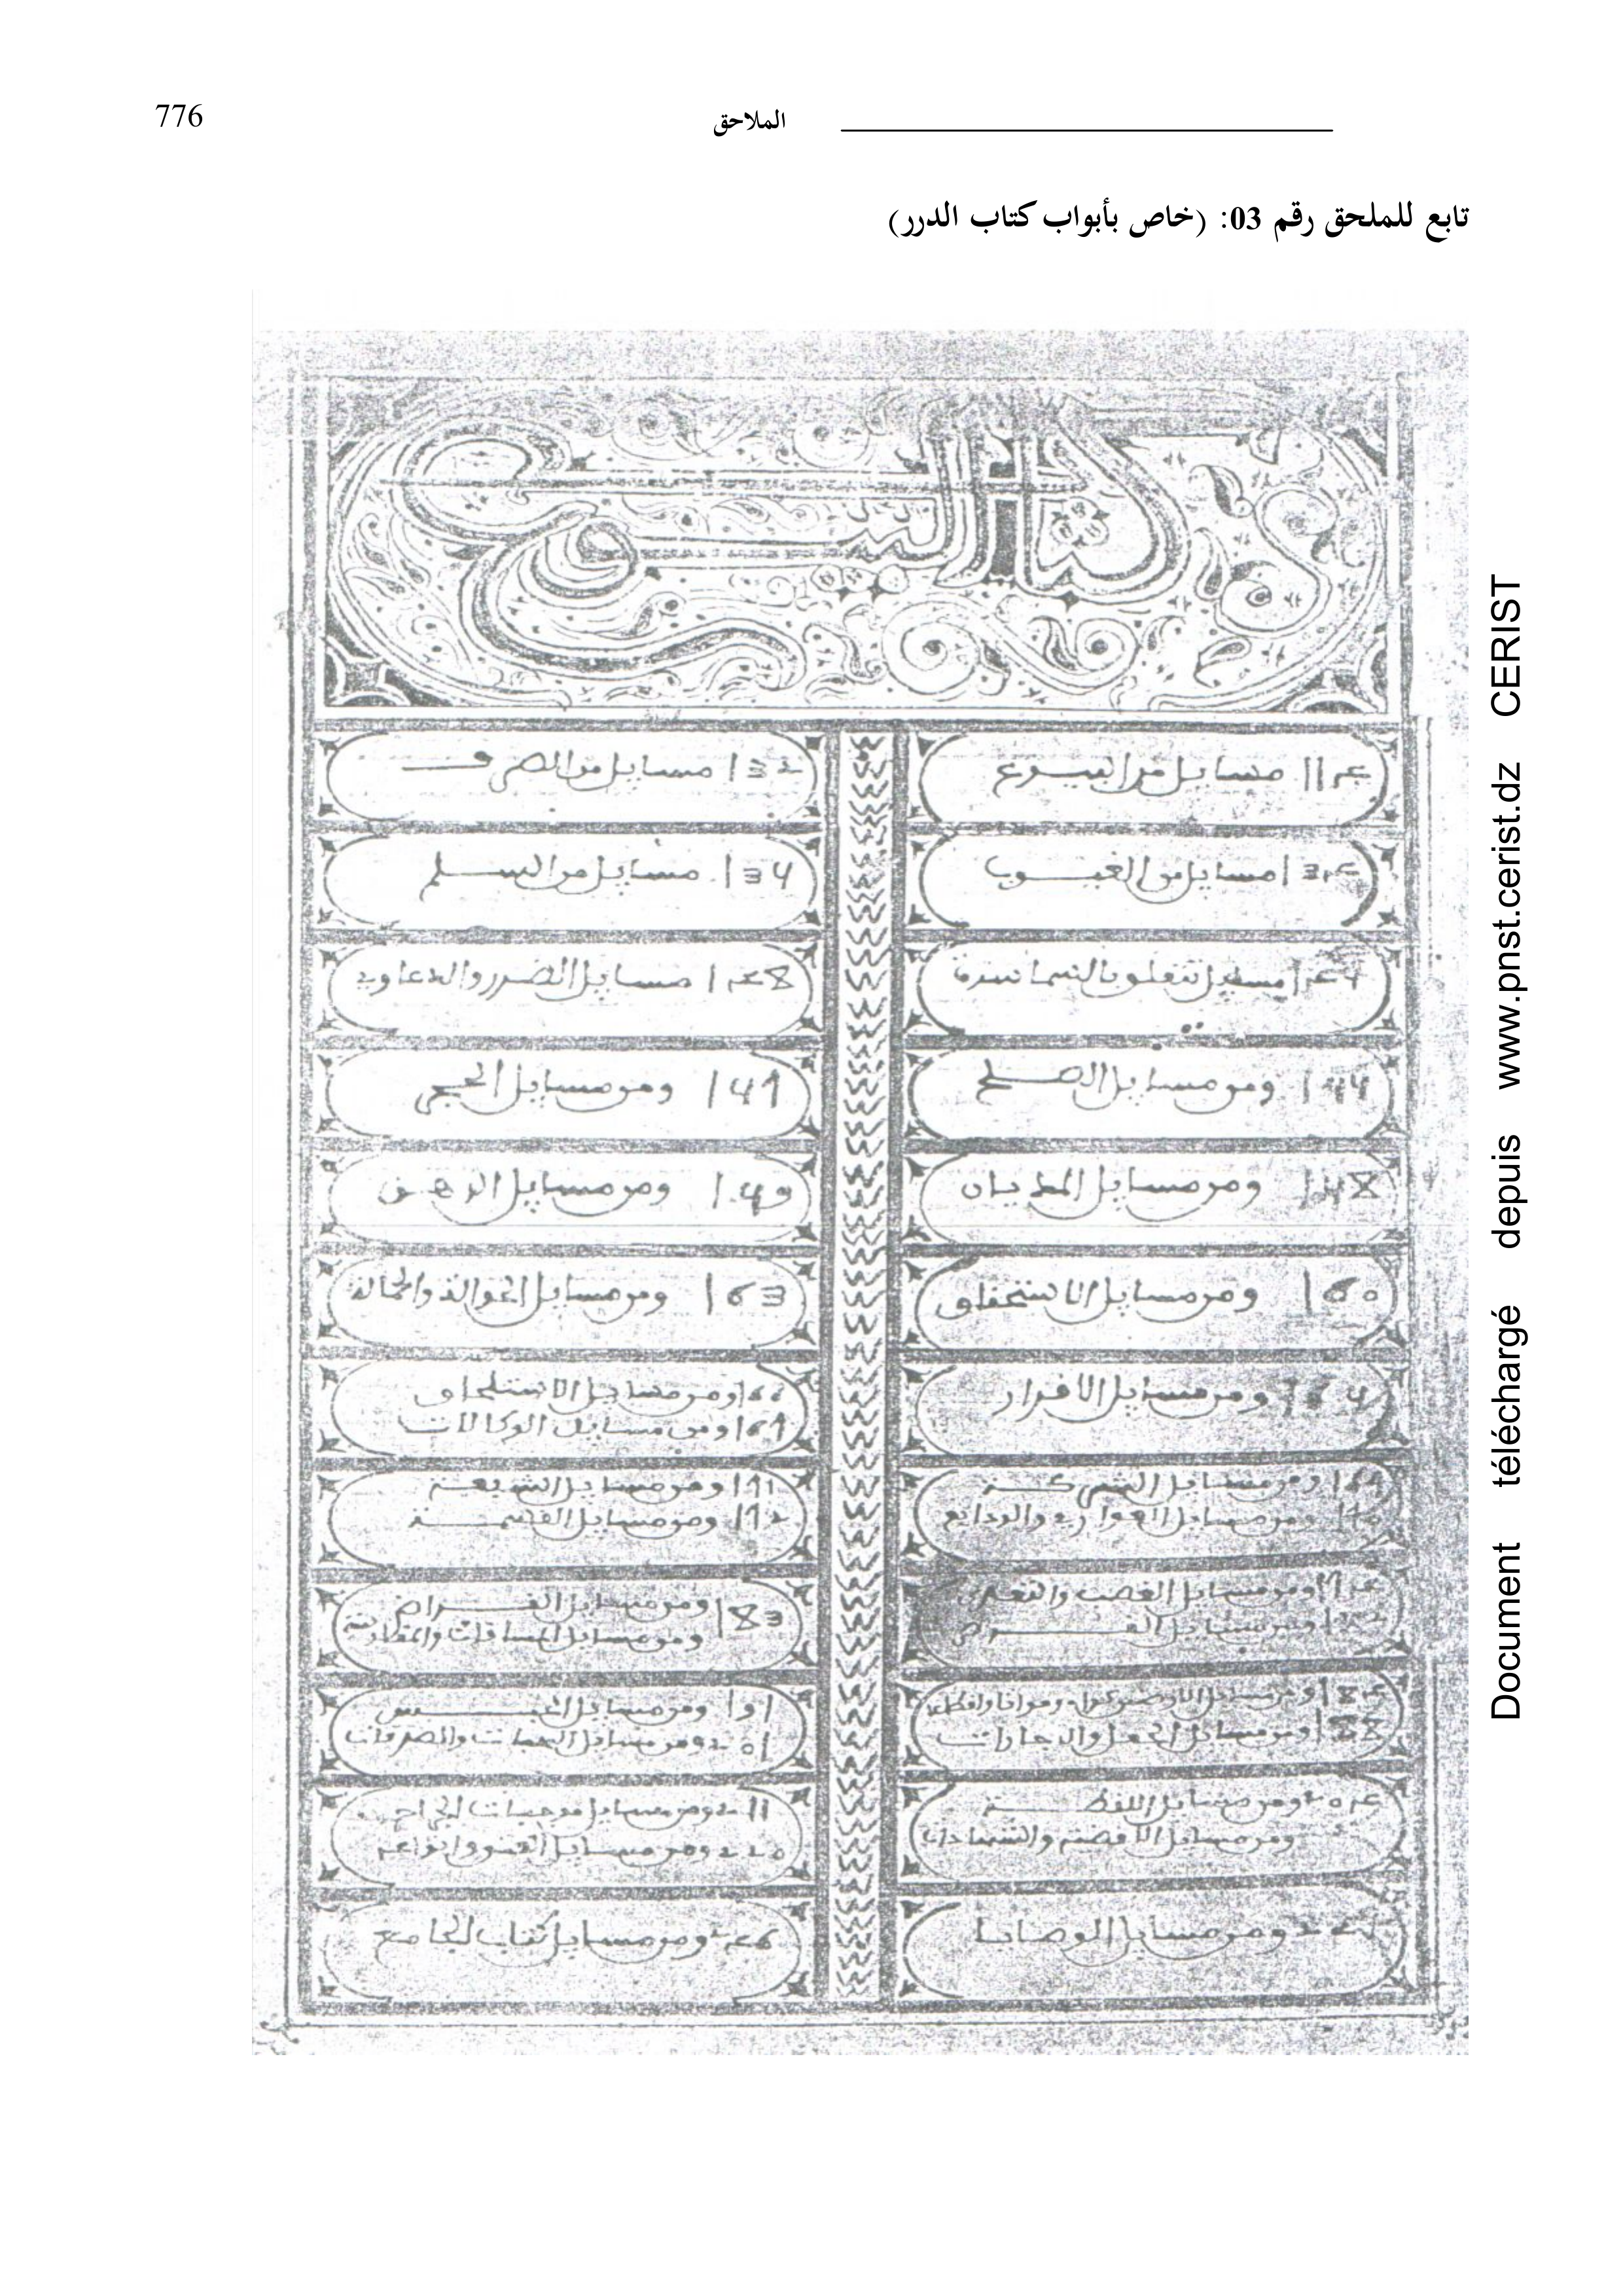 776
الملاحق
تابع للملحق رقم 03: (خاص بأبواب كتاب الدرر)
كتاب البيوع
مسايل من البيوع
132 مسايل من الصرف
مسايل من العيوب
134 مسايل من السلم
مسايل تتعلق بالسماسرة
مسايل الضرر والدعاوي
144 ومن مسايل الصلح
147 ومن مسايل الحجر
148 ومن مسايل المديان
149 ومن مسايل الرهن
160 ومن مسايل الاستحقاق
163 ومن مسايل الحوالة والحمالة
164 ومن مسايل الاقرار
166 ومن مسايل الاستلحاق
167 ومن مسايل الوكالات
ومن مسايل الشركة
ومن مسايل العواري والودايع
171 ومن مسايل الشفعة
172 ومن مسايل القسمة
ومن مسايل الغصب والتعدي
ومن مسايل القراض
183 ومن مسايل القراض
ومن مسايل المساقات والمغارسة
188 ومن مسايل الجعل والاجارات
191 ومن مسايل الحبس
201 ومن مسايل الهبات والصدقات
ومن مسايل اللقطة
ومن مسايل الاقضية والشهادات
211 ومن مسايل موجبات الجراح
220 ومن مسايل العتق وانواعه
ومن مسايل الوصايا
ومن مسايل كتاب الجامع
Document téléchargé depuis www.pnst.cerist.dz CERIST